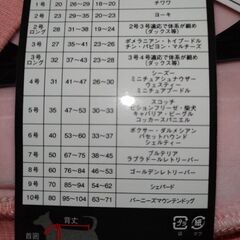 1号 20 26~29 18~20 チワワ
2号 23 29~35 20~22 ヨーキ
2号 ロング 28 31~37 22~24 2号3号適応で体系が細め
(ダックス等)
3号 27 35~41 23~26 ポメラニアン・トイプードル
チン・パピヨン・マルチーズ
3号 ロング 31 37~43 25~28 3号4号適応で体系が細め
(ダックス等)
4号 31 41~47 26~30 シーズー
ミニチュアシュナウザー
ミニチュアプードル
5号 35 47~53 30~34 スコッチ
ビションフリーゼ・柴犬
キャバリア・ビーグル
コッカースパニエル
6号 40 53~59 34~38 ボクサー・ダルメシアン
バセットハウンド
シェルティー
7号 50 59~71 38~45 ブルテリア
ラブラドールレトリーバー
8号 60 71~83 45~52 ゴールデンレトリーバー
9号 70 85~95 54~62 シェパード
10号 80 95~104 63~71 バーニーズマウンテンドッグ
背丈
首囲
プラ 紙